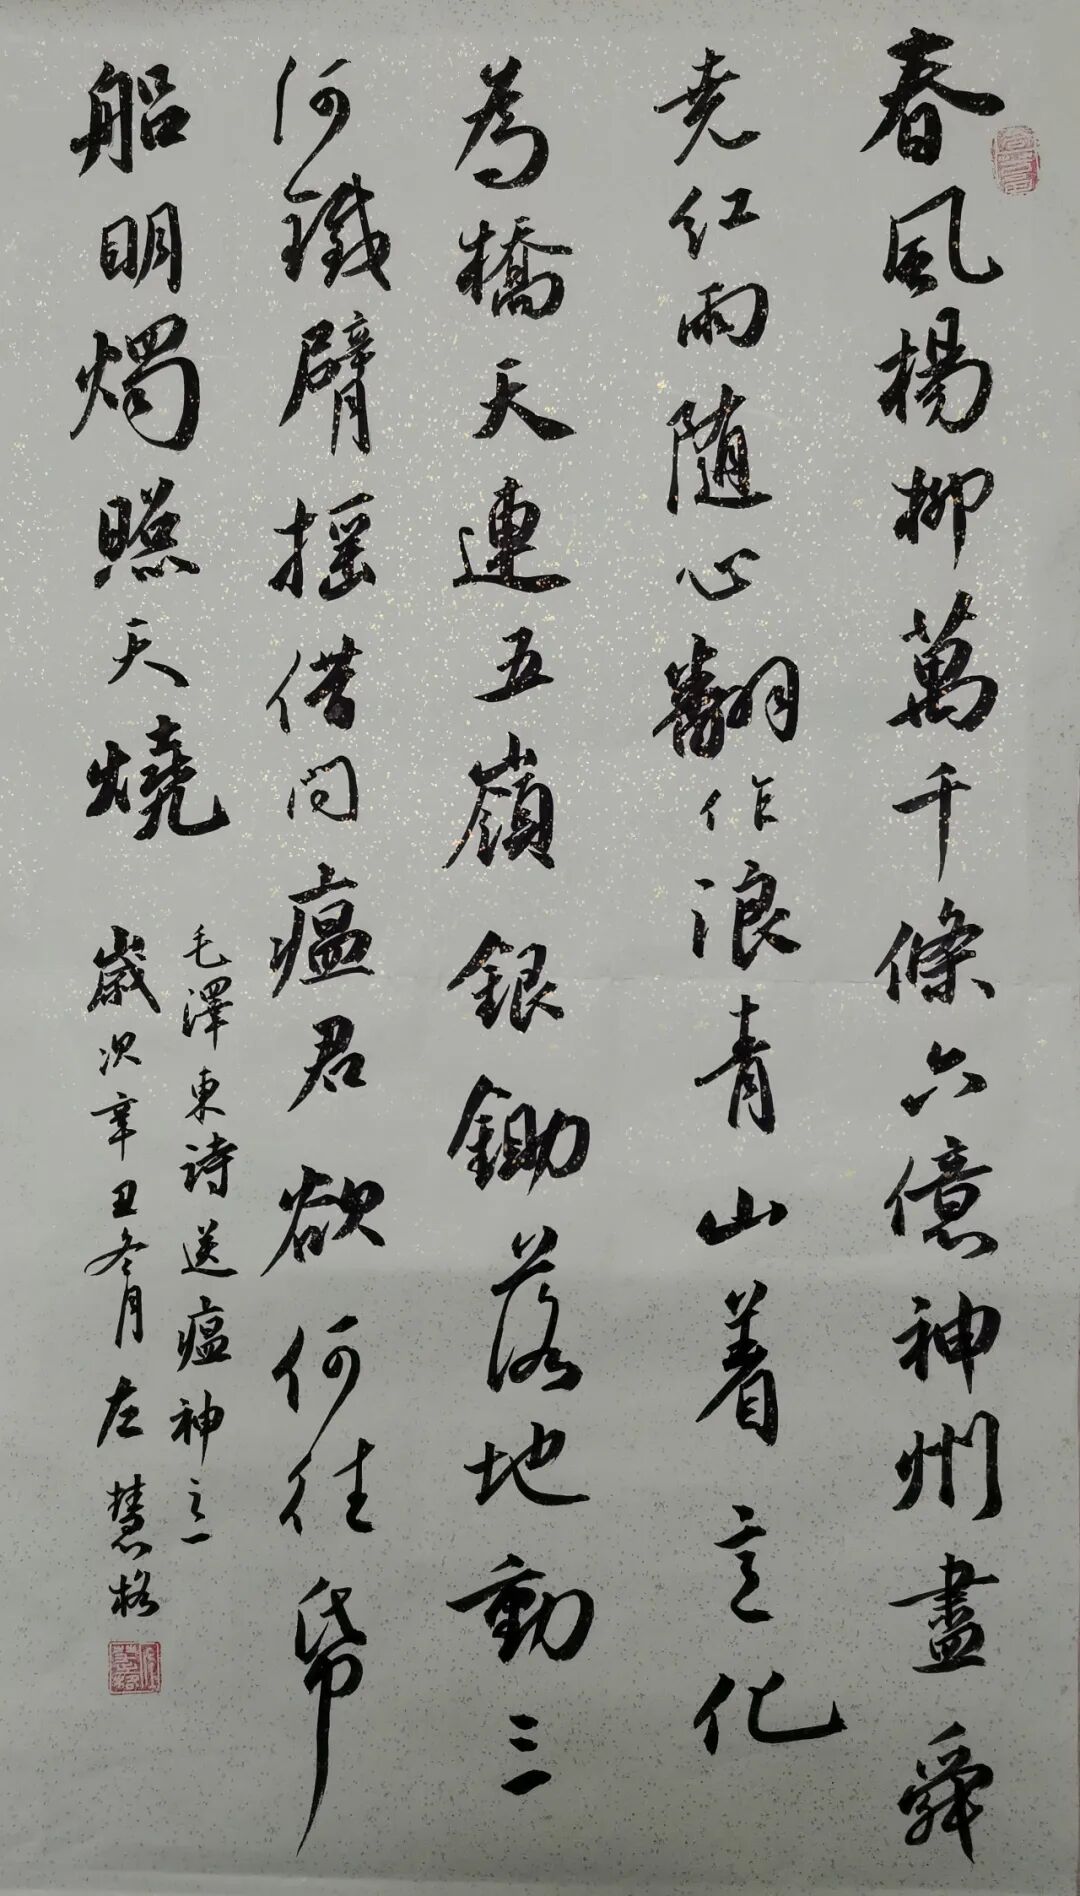 春風楊柳萬千條六億神州盡舜
尭红雨随心翻作浪青山着意化
為橋天連五嶺銀鋤落地動三
河鐵臂摇借問瘟君欲何往紙
船明燭照天燒
毛澤東詩送瘟神之一
歲次辛丑冬月左慧格